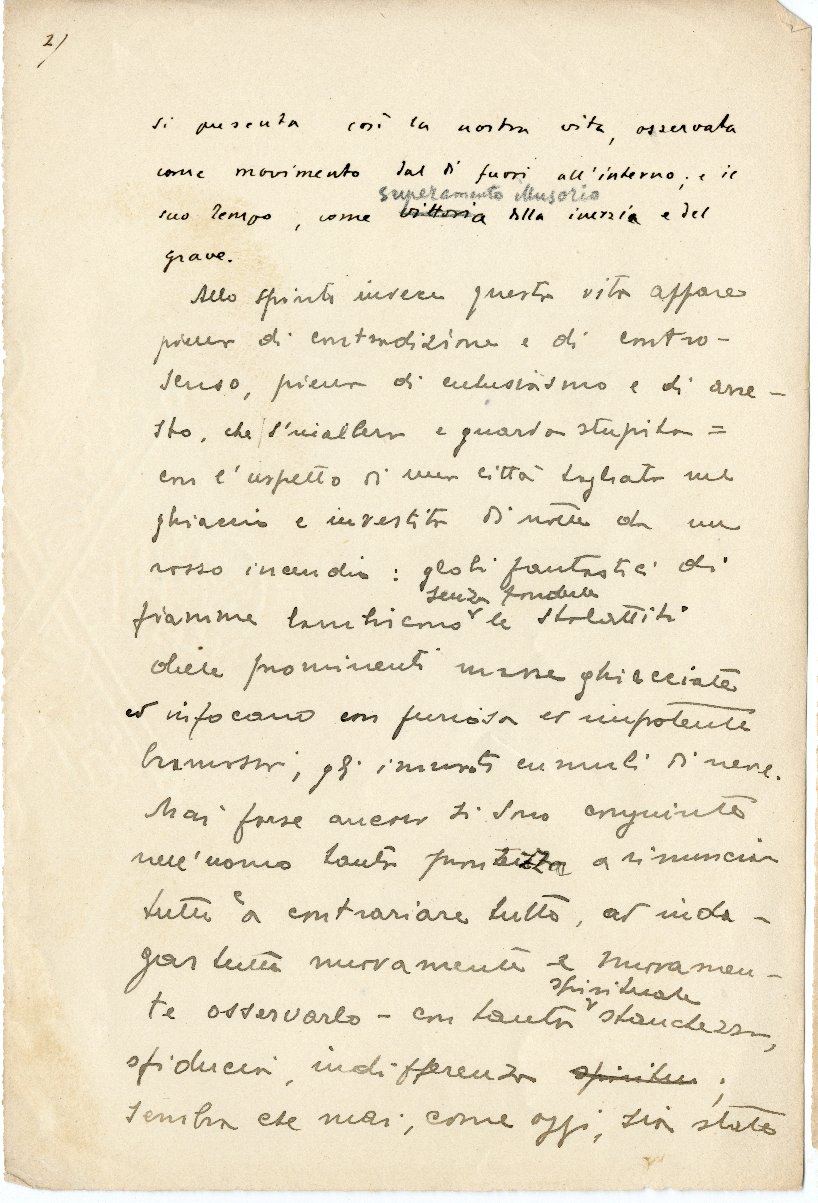 2)
si presenta così la nostra vita, osservata
come movimento dal di fuori all'interno; e il
superamento illusorio
suo tempo, come vittoria della inerzia e del
grave.
Allo spirito invece questa vita appare
piena di contradizione e di contro-
senso, piena di entusiasmo e di arre-
sto, che s'inalbera e guarda stupita =
con l'aspetto di una città tagliata nel
ghiaccio e investita di notte da un
rosso incendio: globi fantastici di
senza fonderle
fiamme lambiscono le stalattiti
delle prominenti masse ghiacciate
ed infocano con furiosa ed impotente
bramosia, gli immoti cumuli di neve.
Mai forse ancora si sono congiunte
nell'uomo tanta prontezza a rinunciar
tutto e a contrariare tutto, ad inda-
gar tutto nuovamente e nuovamen-
spirituale
te osservarlo - con tanta stanchezza,
sfiducia, indifferenza ;
sembra che mai, come oggi, sia stato